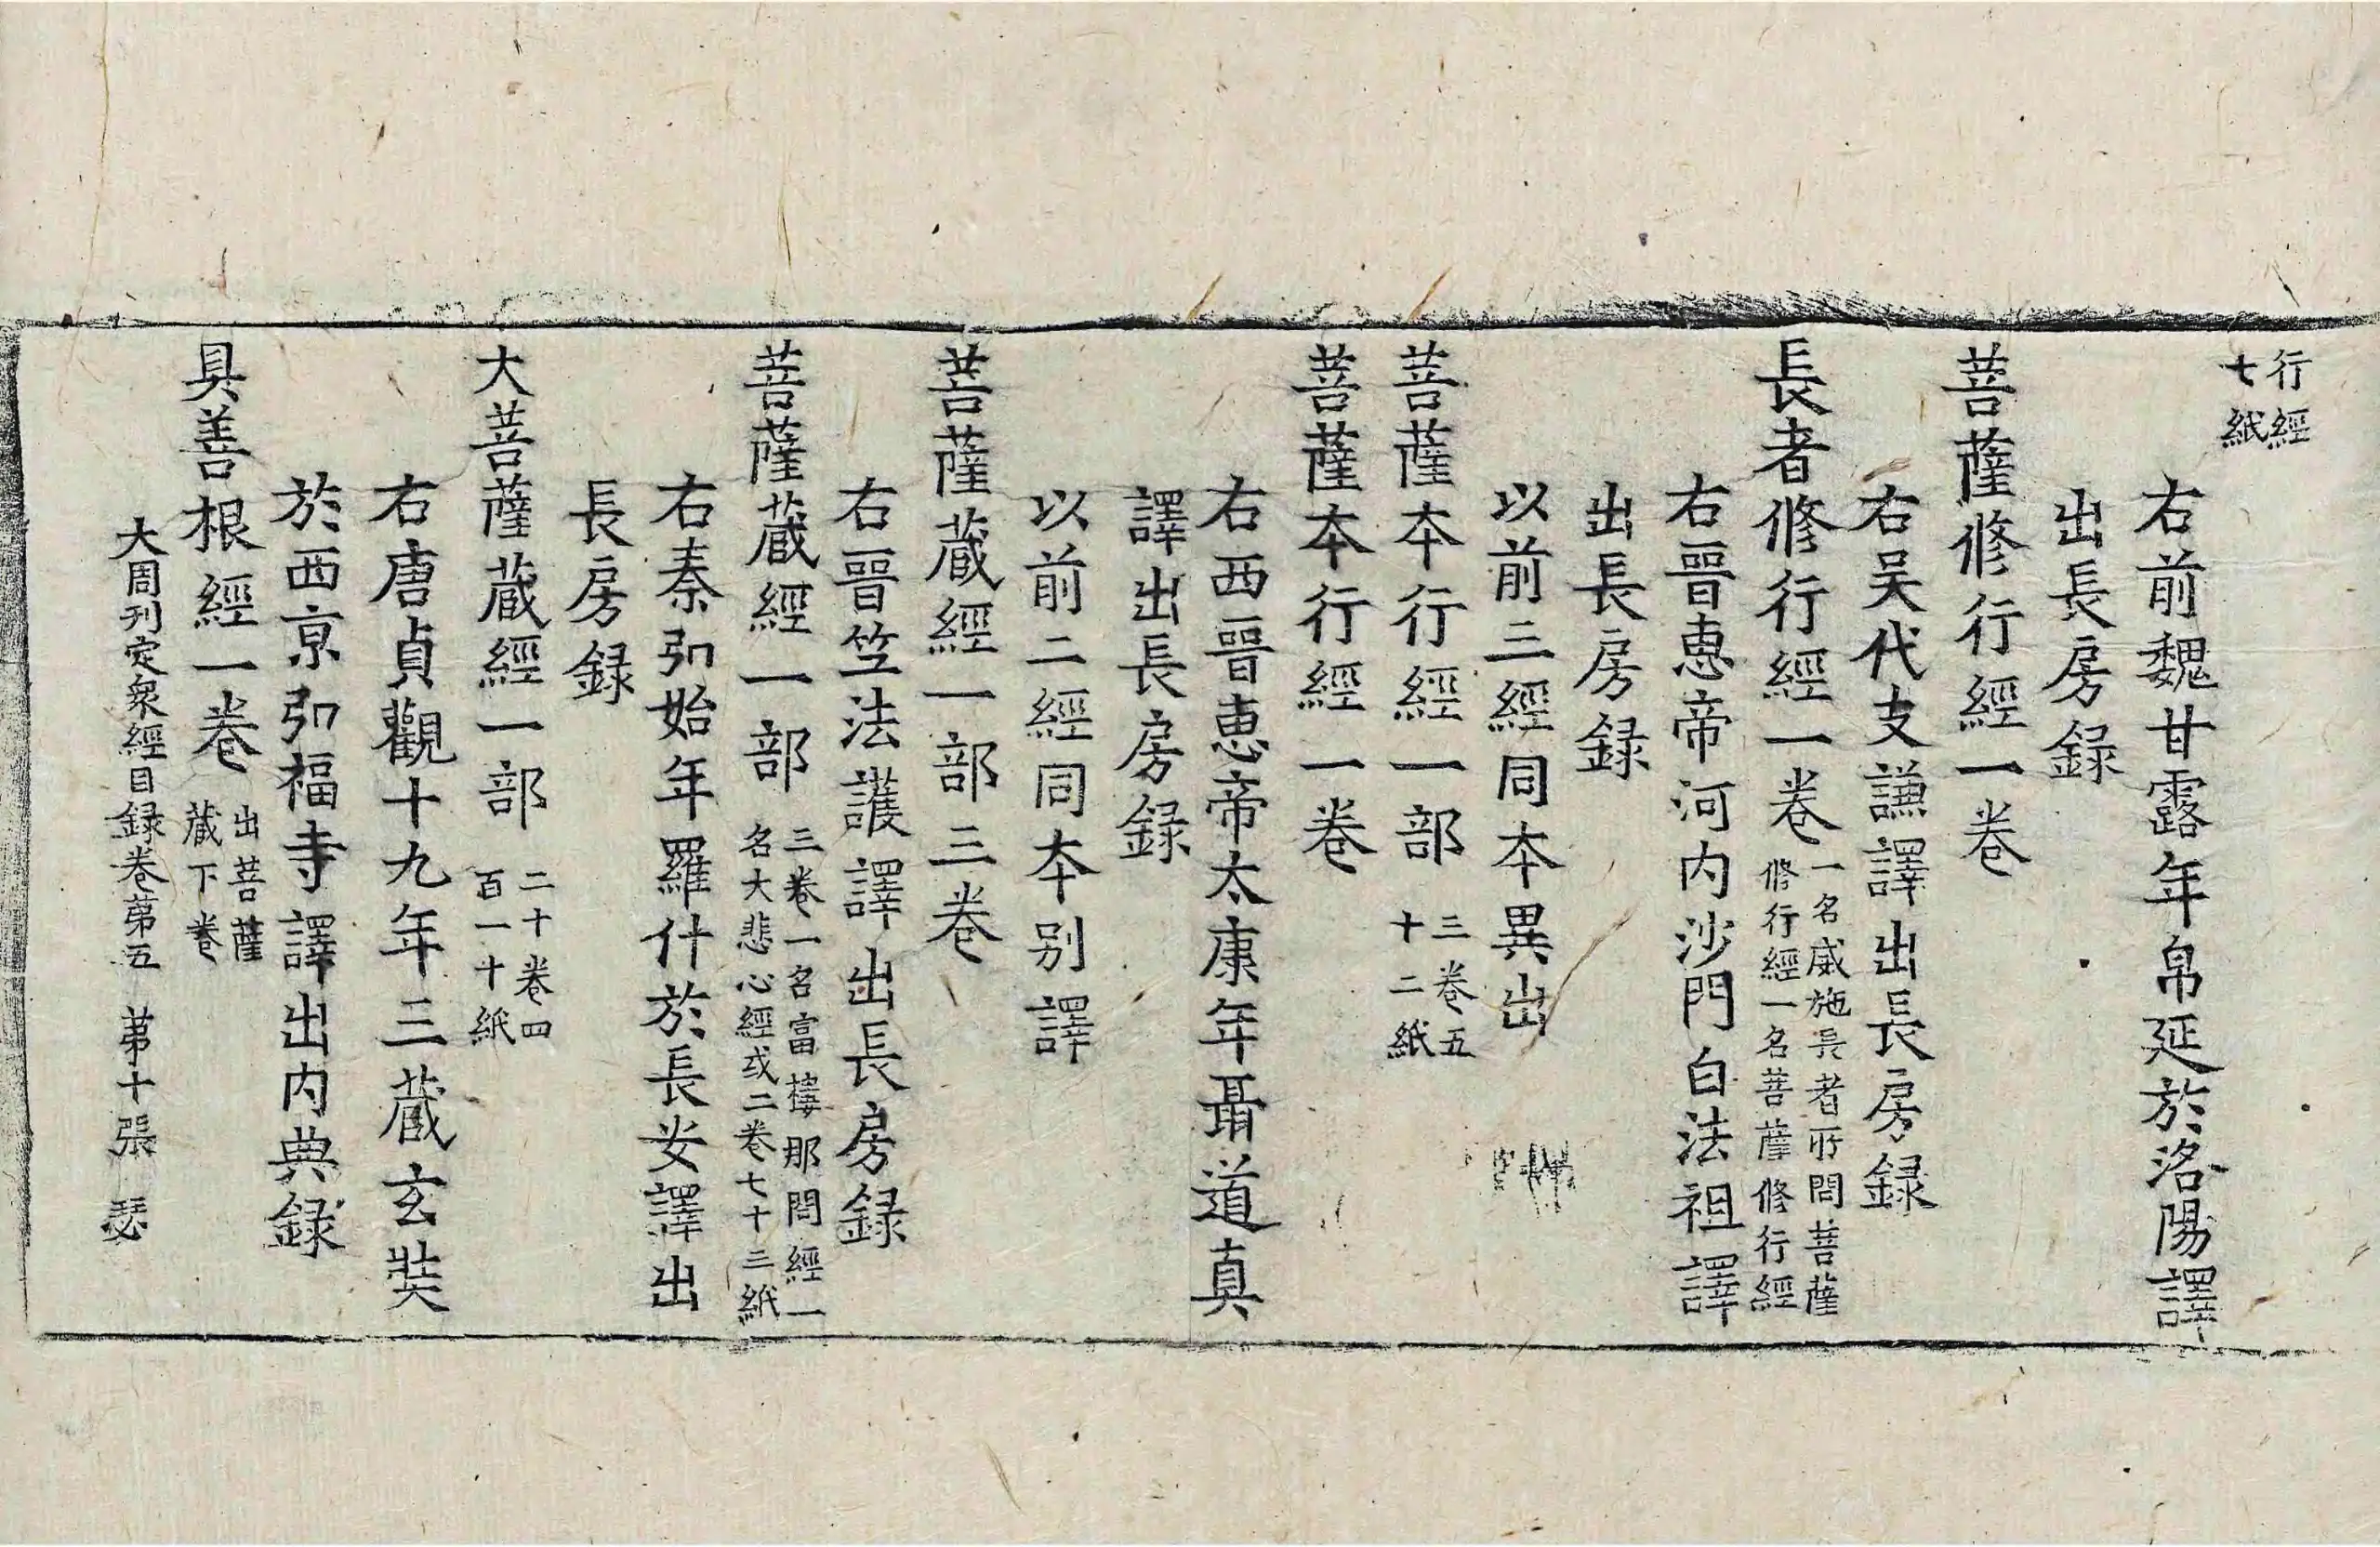 行經
七紙
右前魏甘露年帛延於洛陽譯
出長房録
菩薩修行經一卷
右吴代支謙譯出長房録
長者修行經一卷 一名威施長者所問菩薩
修行經一名菩薩修行經
右晉惠帝河内沙門白法祖譯
出長房録
以前三經同本異出
菩薩本行經一部 三卷五
十二紙
菩薩本行經一卷
右西晉惠帝太康年聶道真
譯出長房録
以前二經同本别譯
菩薩蔵經一部三卷
右晉竺法護譯出長房録
菩薩蔵經一部 三卷一名富樓那問經一
名大悲心經或二卷七十三紙
右秦弘始年羅什於長安譯出
長房録
大菩薩蔵經一部 二十卷四
百一十紙
右唐貞觀十九年三蔵玄奘
於西京弘福寺譯出内典録
具善根經一卷 出菩薩
蔵下卷
大周刊定衆經目録卷第五 第十張 瑟